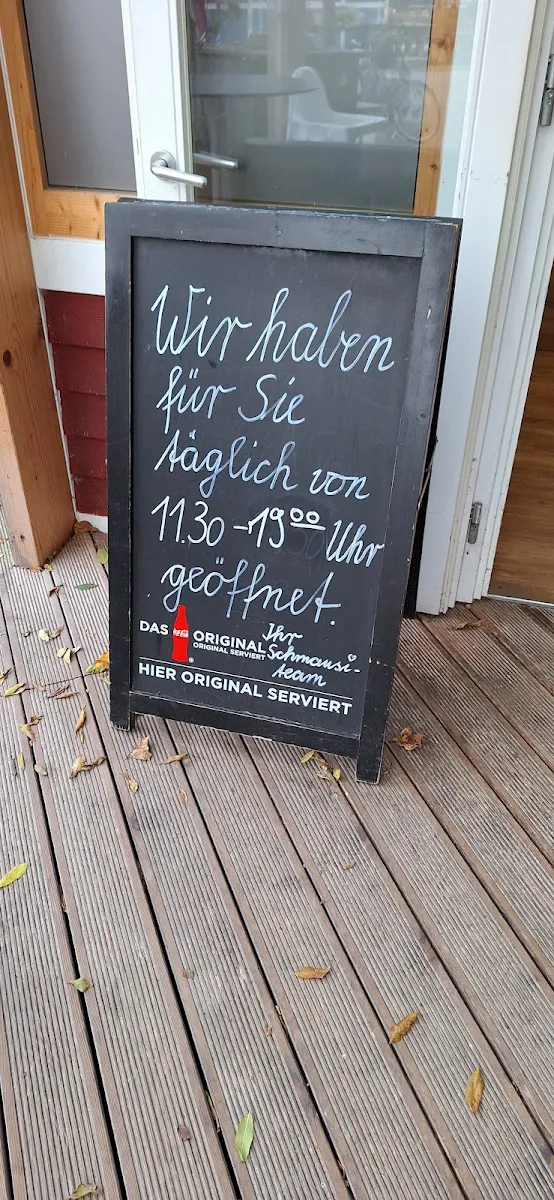 Wir haben
für Sie
täglich von
11.30 - 19 00 Uhr
geöffnet.
Ihr
Schmausi-
team
DAS Coca-Cola ORIGINAL
ORIGINAL SERVIERT
HIER ORIGINAL SERVIERT